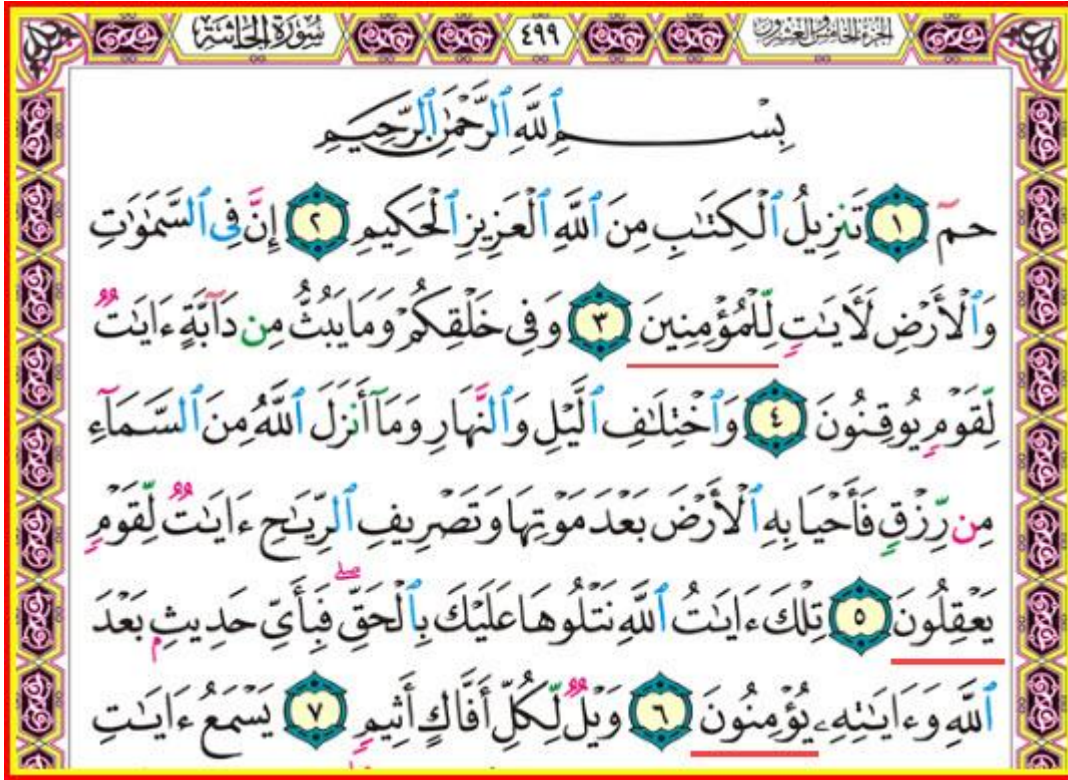 الجزء الخامس والعشرون ٤٩٩ سُورَةُ الجَاثِيَةِ
بِسْمِ ٱللَّهِ ٱلرَّحْمَٰنِ ٱلرَّحِيمِ
حمٓ ١ تَنزِيلُ ٱلْكِتَٰبِ مِنَ ٱللَّهِ ٱلْعَزِيزِ ٱلْحَكِيمِ ٢ إِنَّ فِى ٱلسَّمَٰوَٰتِ
وَٱلْأَرْضِ لَأٓيَٰتٍ لِّلْمُؤْمِنِينَ ٣ وَفِى خَلْقِكُمْ وَمَا يَبُثُّ مِن دَآبَّةٍ ءَايَٰتٌ
لِّقَوْمٍ يُوقِنُونَ ٤ وَٱخْتِلَٰفِ ٱلَّيْلِ وَٱلنَّهَارِ وَمَآ أَنزَلَ ٱللَّهُ مِنَ ٱلسَّمَآءِ
مِن رِّزْقٍ فَأَحْيَا بِهِ ٱلْأَرْضَ بَعْدَ مَوْتِهَا وَتَصْرِيفِ ٱلرِّيَٰحِ ءَايَٰتٌ لِّقَوْمٍ
يَعْقِلُونَ ٥ تِلْكَ ءَايَٰتُ ٱللَّهِ نَتْلُوهَا عَلَيْكَ بِٱلْحَقِّ ۖ فَبِأَىِّ حَدِيثٍۭ بَعْدَ
ٱللَّهِ وَءَايَٰتِهِۦ يُؤْمِنُونَ ٦ وَيْلٌ لِّكُلِّ أَفَّاكٍ أَثِيمٍ ٧ يَسْمَعُ ءَايَٰتِ